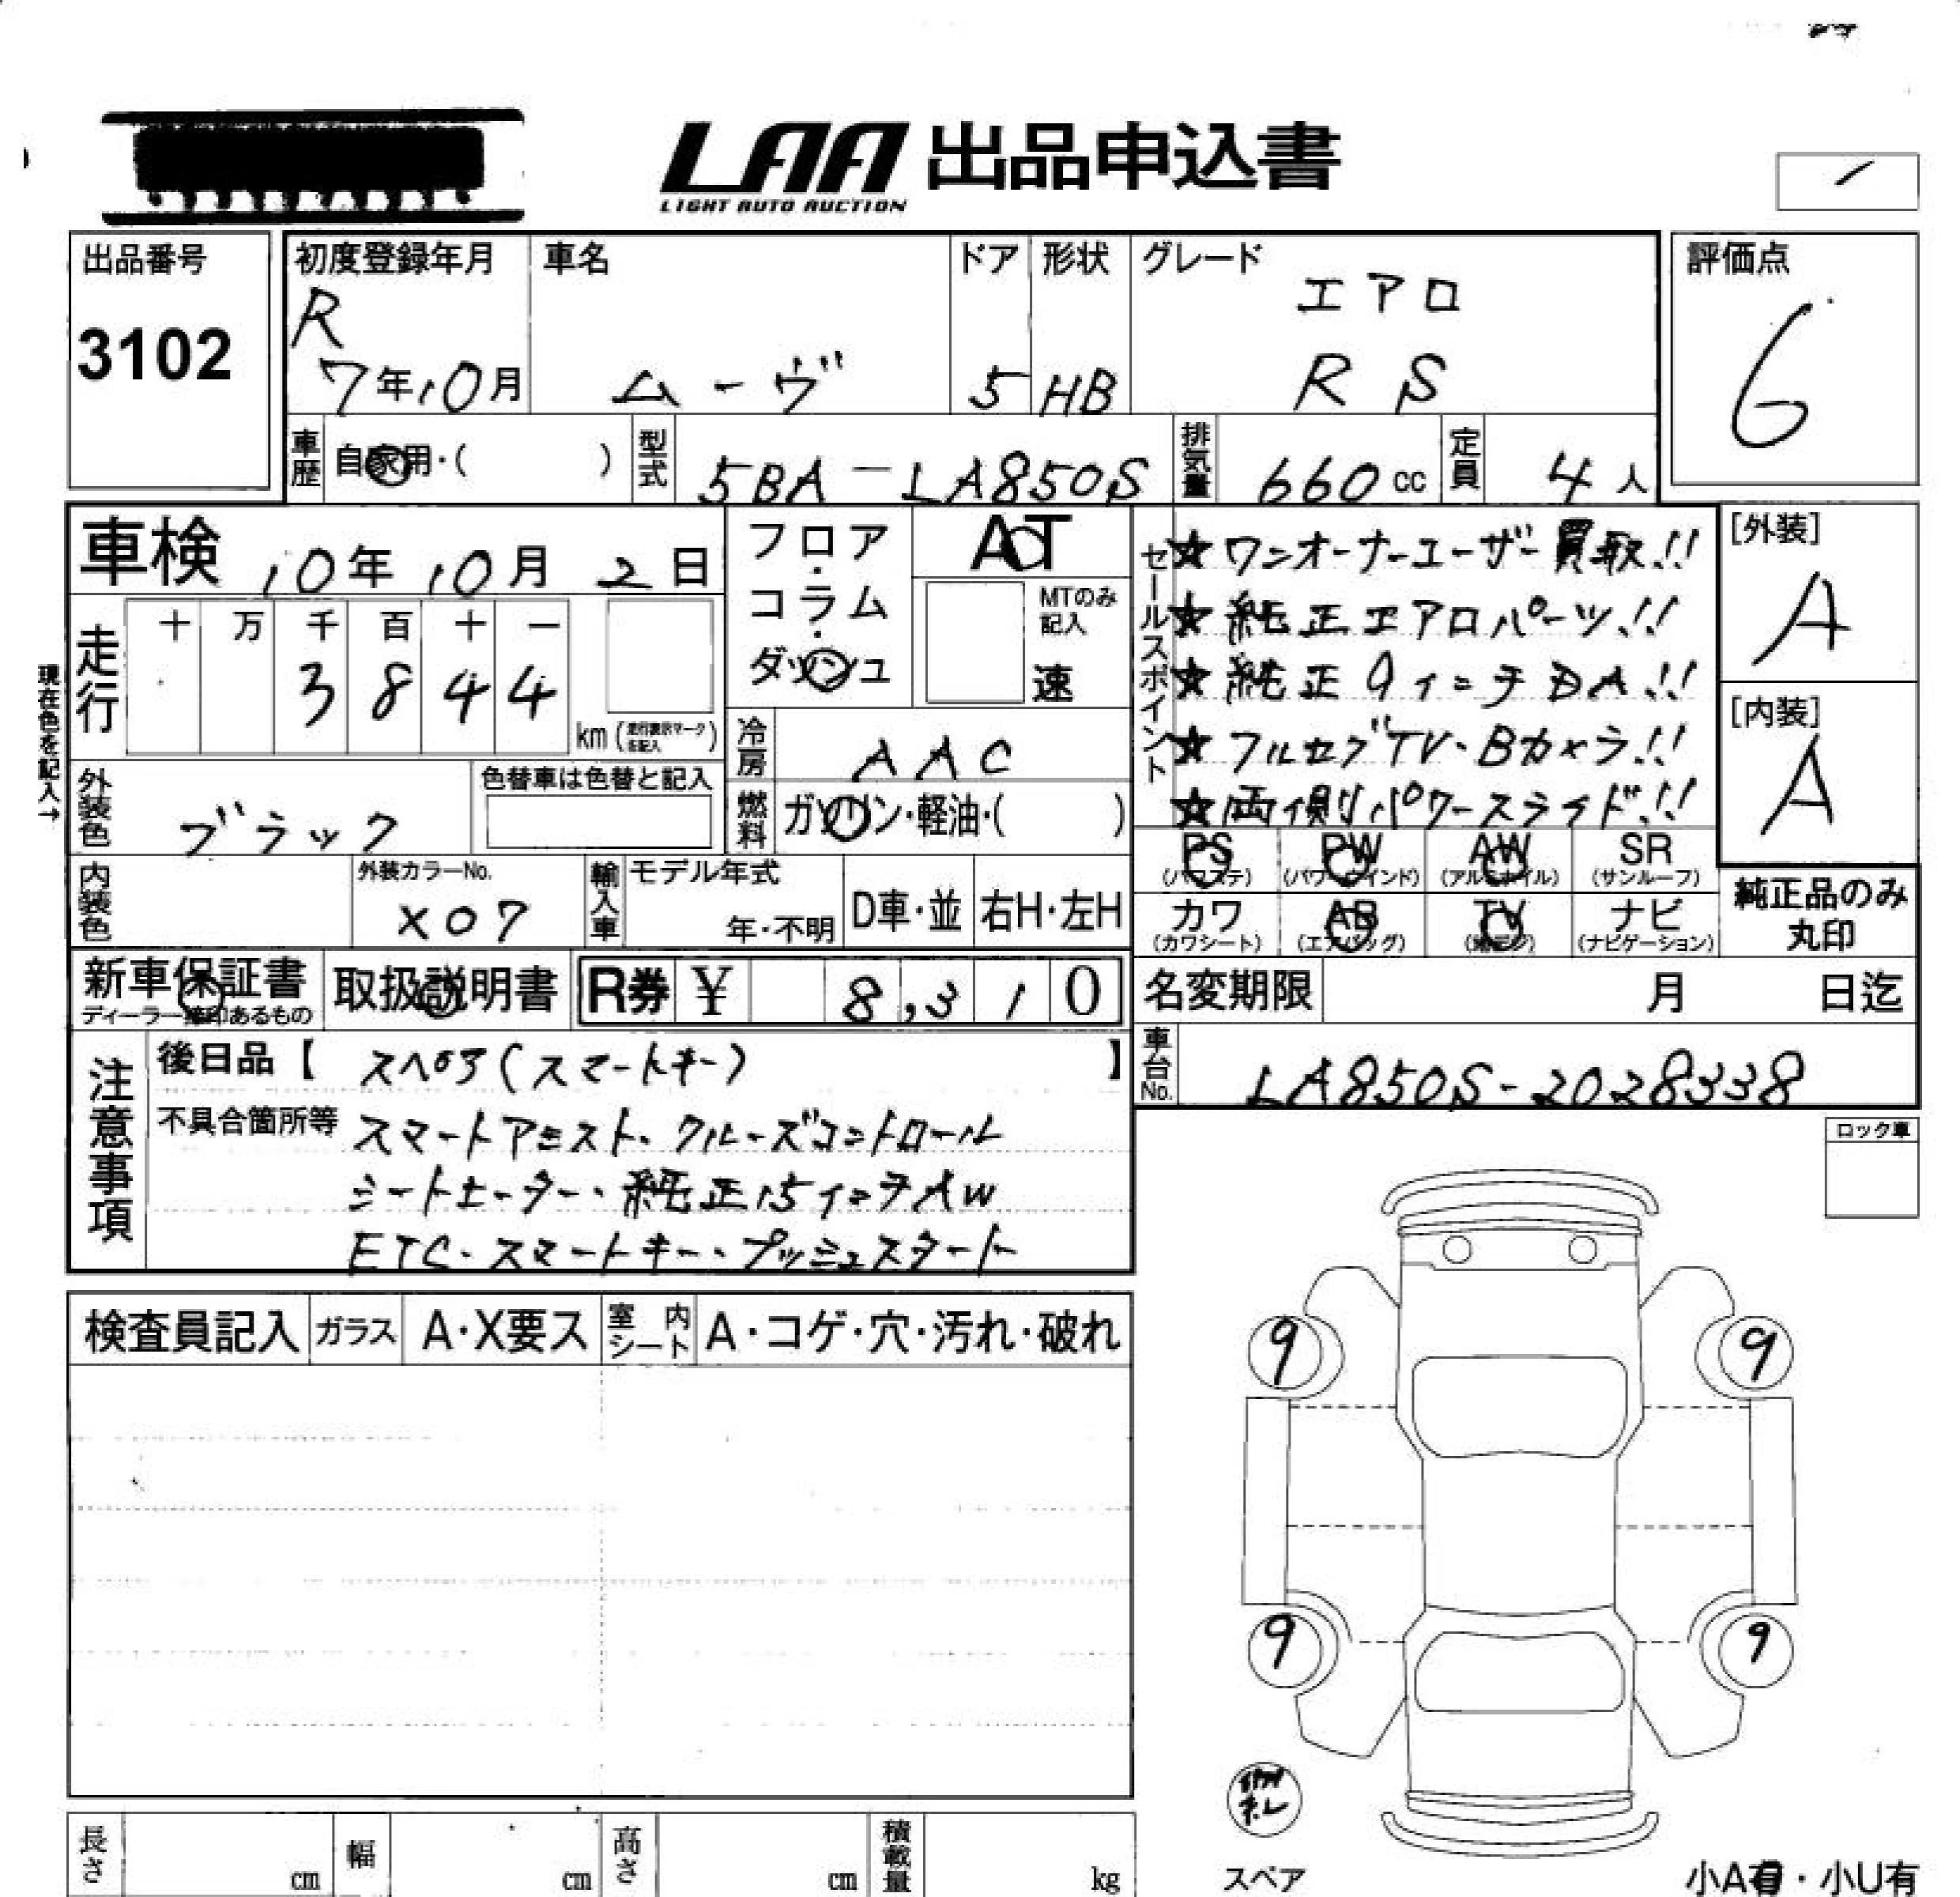 LAA 出品申込書
LIGHT AUTO AUCTION
出品番号
3102
初度登録年月
R
7年10月
車名
ムーヴ
ドア
5
形状
HB
グレード
エアロ
RS
評価点
6
車歴
自家用・( )
型式
5BA-LA850S
排気量
660cc
定員
4人
車検 10年10月2日
フロア・コラム・ダッシュ
AT
MTのみ記入
速
セールスポイント
☆ワンオーナーユーザー買取!!
☆純正エアロパーツ!!
☆純正9インチDA!!
☆フルセグTV・Bカメラ!!
☆両側パワースライド!!
[外装]
A
[内装]
A
現在色を記入→
走行
十 万 千 百 十 一
3 8 4 4
km(走行表示マークを記入)
冷房
AAC
外装色
ブラック
色替車は色替と記入
燃料
ガソリン・軽油・( )
PS
(パワステ)
PW
(パワーウインド)
AW
(アルミホイル)
SR
(サンルーフ)
内装色
外装カラーNo.
X07
輸入車
モデル年式
年・不明
D車・並
右H・左H
カワ
(カワシート)
AB
(エアバッグ)
TV
(地デジ)
ナビ
(ナビゲーション)
純正品のみ
丸印
新車保証書
ディーラー捺印あるもの
取扱説明書
R券 ¥ 8,310
名変期限 月 日迄
注意事項
後日品【 スペア(スマートキー) 】
車台No.
LA850S-2028338
不具合箇所等
スマートアシスト・クルーズコントロール
シートヒーター・純正15インチAW
ETC・スマートキー・プッシュスタート
ロック車
検査員記入
ガラス
A・X要ス
室内シート
A・コゲ・穴・汚れ・破れ
9 9
9 9
長さ cm
幅 cm
高さ cm
積載量 kg
スペア
小A有・小U有